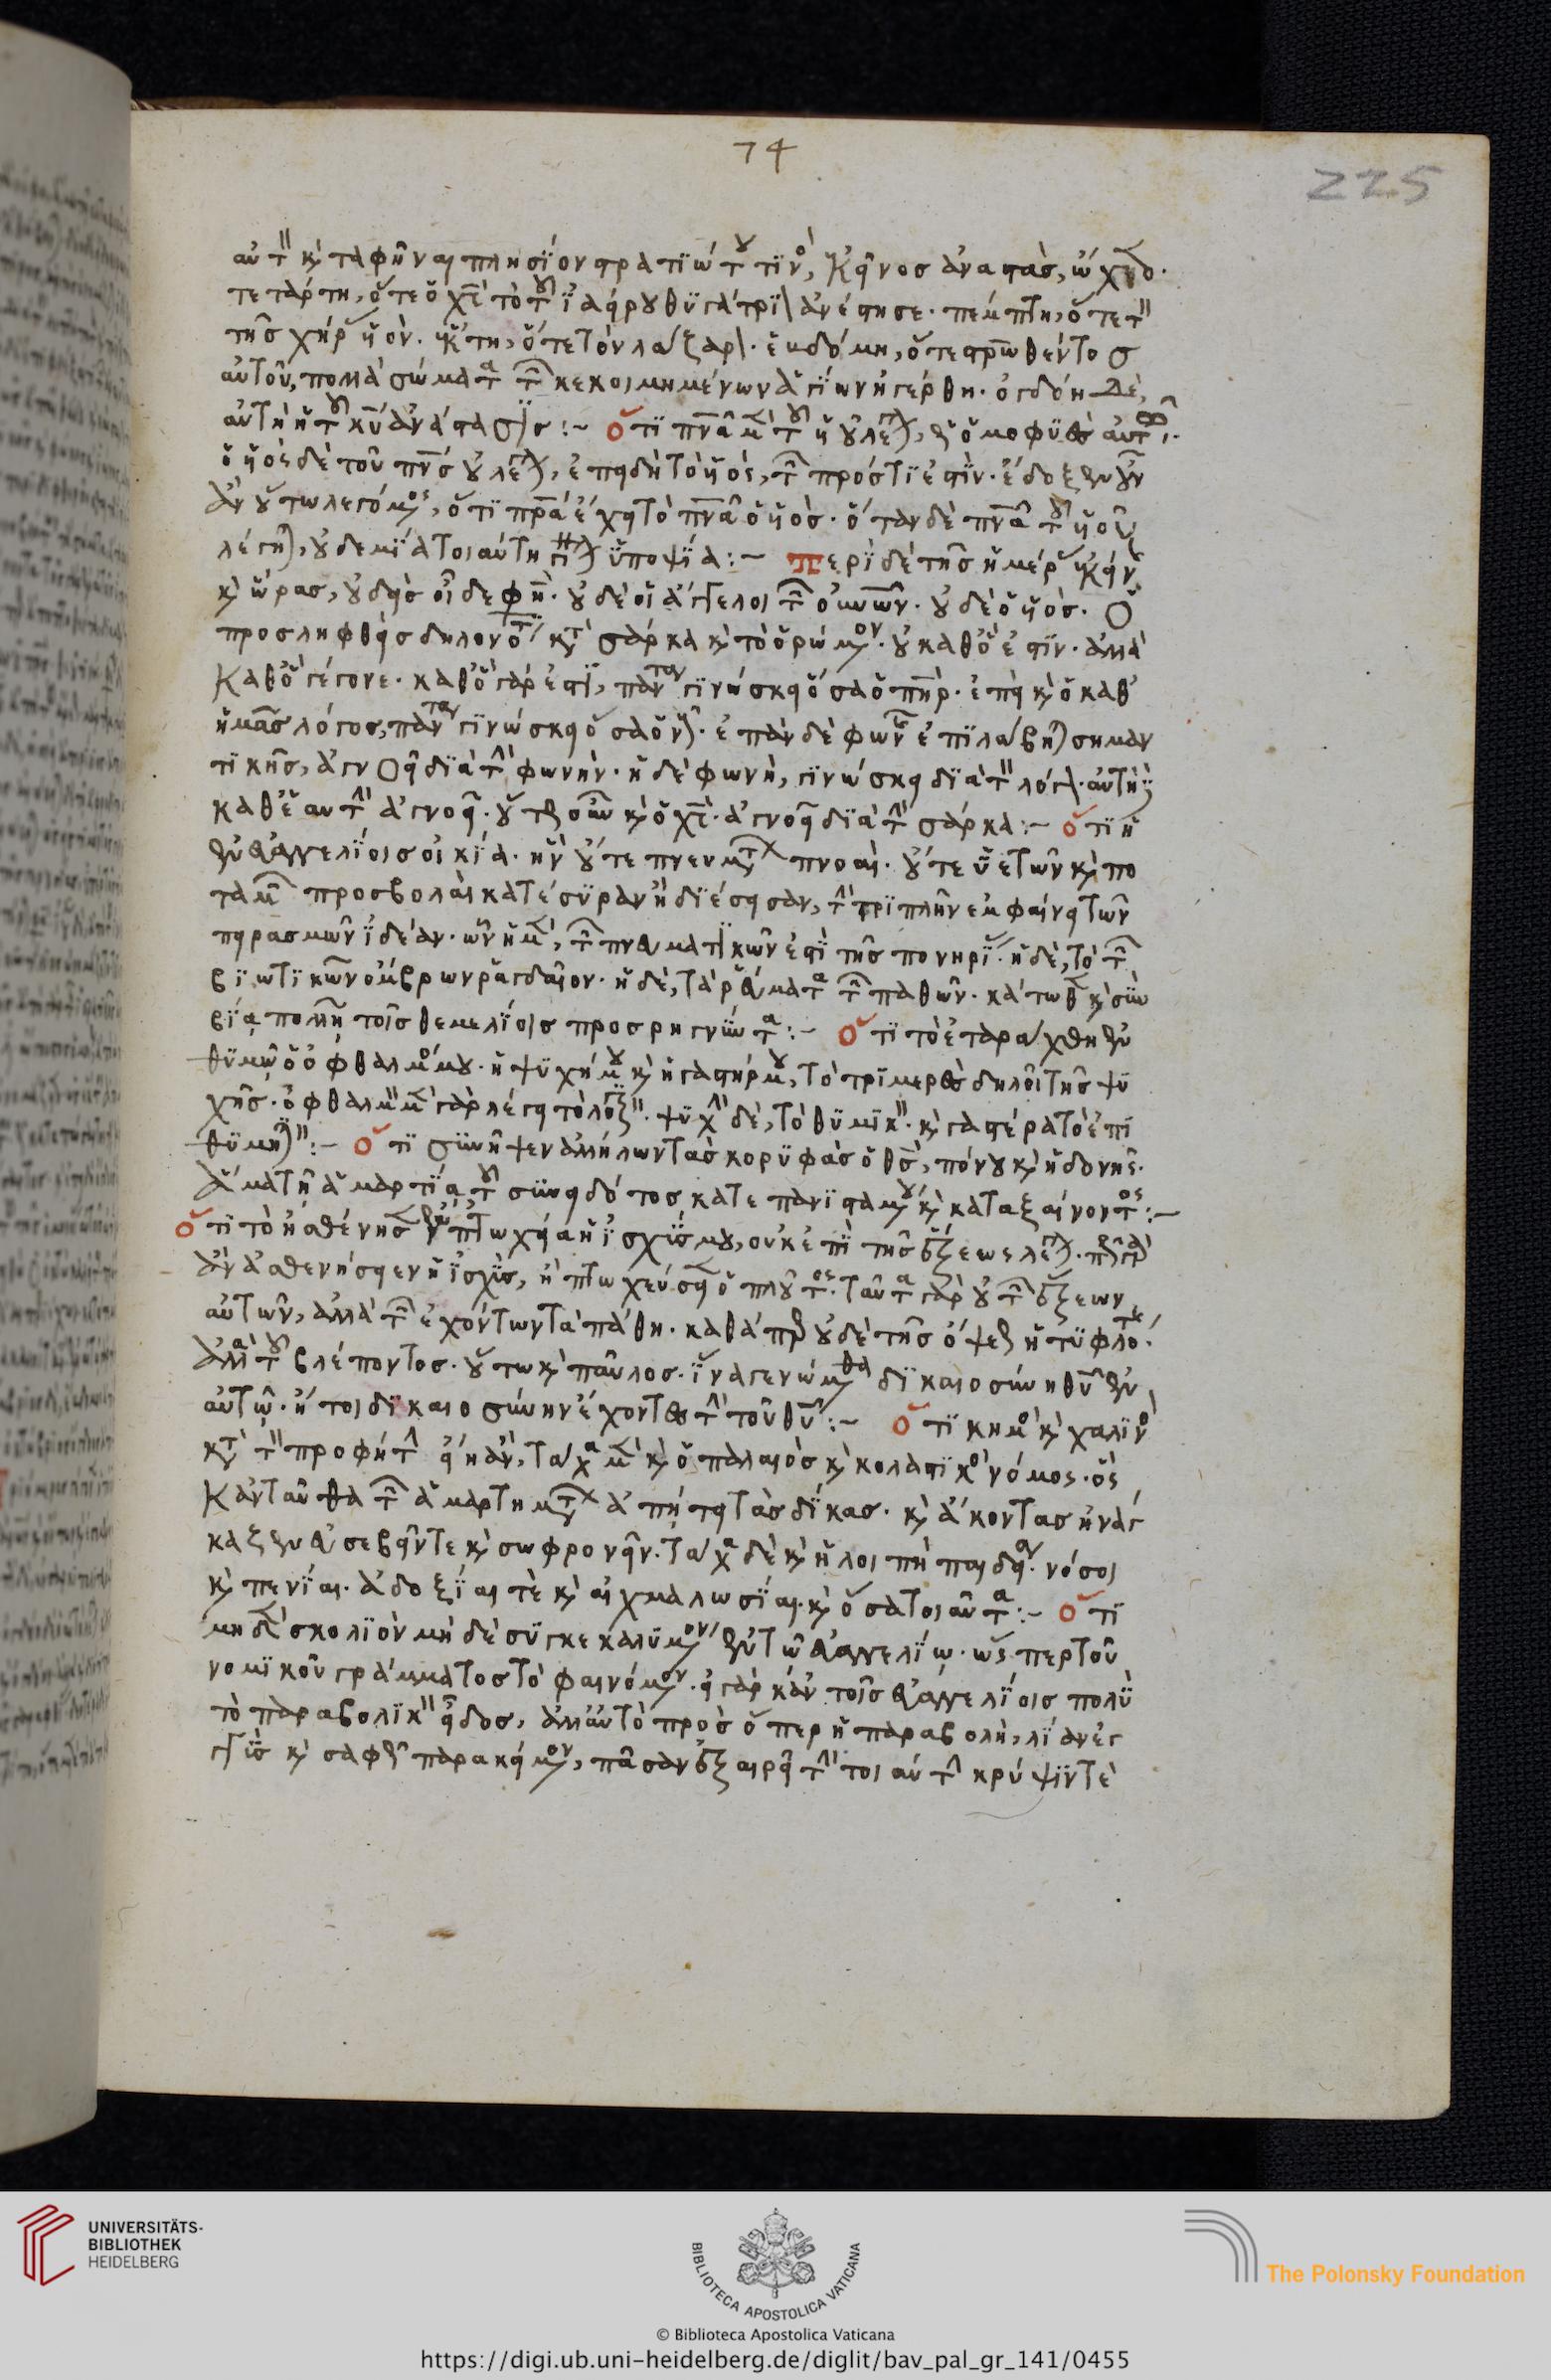 74
225
αὐτὸν καὶ ταφῆναι πλησίον στρατιώτου τινός, κἀκεῖνος ἀναστάς,
τετάρτη, ὅτε ὁ χς τὸ τοῦ ἰαείρου θυγάτριον ἀνέστησε. πέμπτη, ὅτε τὸν
τῆς χήρας υἱόν. ἕκτη, ὅτε τὸν λάζαρον. ἑβδόμη, ὅτε σταυρωθέντος
αὐτοῦ, πολλὰ σώματα τῶν κεκοιμημένων ἁγίων ἠγέρθη. ὀγδόη δὲ,
αὐτὴ ἡ τοῦ κυ ἀνάστασις :- ὅτι πνα μὲν τοῦ υἱοῦ λέγεται, ὡς ὁμοφυὲς αὐτῷ.
ὁ υἱὸς δὲ τοῦ πνς οὐ λέγεται, ἐπειδὴ τὸ υἱὸς, τῶν πρός τι ἐστίν. ἔδοξεν οὖν
ἂν οὕτω λεγόμενος, ὅτι πρα ἔχει τὸ πνα ὁ υἱός. ὅταν δὲ πνα τοῦ υἱοῦ
λέγηται, οὐδεμία τοιαύτη γίνεται ὑποψία :- περὶ δὲ τῆς ἡμέρας ἐκείνης
καὶ ὥρας, οὐδεὶς οἶδε φησὶ. οὐδὲ οἱ ἄγγελοι τῶν οὐνῶν. οὐδὲ ὁ υἱός. ὁ
προσληφθεὶς δηλονότι κατὰ σάρκα καὶ τὸ ὁρώμενον. οὐ καθὸ ἐστίν. ἀλλὰ
καθὸ γέγονε. καθὸ γάρ ἐστι, πάντα γινώσκει ὅσα ὁ πηρ. ἐπεὶ καὶ ὁ καθ'
ἡμᾶς λόγος, πάντα γινώσκει ὅσα ὁ νοῦς. ἐπὰν δὲ φωνῆς ἐπιλάβηται σημαν
τικῆς, ἀγνοεῖ διὰ τὴν φωνήν. ἡ δὲ φωνὴ, γινώσκει διὰ τὸν λόγον. αὐτὴ
καθ' ἑαυτὴν ἀγνοεῖ. οὕτως οὖν καὶ ὁ χς. ἀγνοεῖ διὰ τὴν σάρκα :- ὅτι ἡ
ἐν εὐαγγελίοις οἰκία. ἣν οὔτε πνευμάτων πνοαὶ. οὔτε ὑετῶν καὶ πο
ταμῶν προσβολαὶ κατέσυραν ἢ διέσεισαν, τὴν τριπλῆν ἐμφαίνει τῶν
πειρασμῶν ἰδέαν. ὧν ἡ μὲν, τῶν πνευματικῶν ἐστὶ τῆς πονηρίας. ἡ δὲ, τὸ τῶν
βιωτικῶν ὄμβρων ῥαγδαῖον. ἡ δὲ, τὰ ῥεύματα τῶν παθῶν. κάτωθεν καὶ σὺν
βίᾳ πολλῇ τοῖς θεμελίοις προσρηγνύντα :- ὅτι τὸ ἐταράχθη ἐν
θυμῷ ὁ ὀφθαλμός μου. ἡ ψυχή μου καὶ ἡ γαστήρ μου, τὸ τριμερὲς δηλοῖ τῆς ψυ
χῆς. ὀφθαλμὸν μὲν γὰρ λέγει τὸ λογιστικόν. ψυχὴν δὲ, τὸ θυμικόν. καὶ γαστέρα τὸ ἐπι
θυμητικόν :- ὅτι συνῆψεν ἀλλήλων τὰς κορυφὰς ὁ θς, πόνου καὶ ἡδονῆς.
ἅμα τῇ ἁμαρτίᾳ τοῦ συνειδότος κατεπανισταμένου καὶ καταξαίνοντος :-
ὅτι τὸ ἠσθένησεν ἐν πτωχείᾳ ἡ ἰσχύς μου, οὐκ ἐπὶ τῆς ἕξεως λέγεται.
ἂν ἀσθενήσειεν ἡ ἰσχὺς, ἢ πτωχεύσειεν ὁ πλοῦτος. ταῦτα γὰρ οὐ τῶν ἕξεων
αὐτῶν, ἀλλὰ τῶν ἐχόντων τὰ πάθη. καθάπερ οὐδὲ τῆς ὄψεως ἡ τυφλότης.
ἀλλὰ τοῦ βλέποντος. οὕτω καὶ παῦλος. ἵνα γενώμεθα δικαιοσύνη θυ ἐν
αὐτῷ. ἤτοι δικαιοσύνην ἔχοντες τὴν τοῦ θυ :- ὅτι κημὸς καὶ χαλινὸς
κατὰ τὸν προφήτην εἴη ἂν, τάχα μὲν καὶ ὁ παλαιὸς καὶ κολαστικὸς νόμος. ὃς
κἀνταῦθα τῶν ἁμαρτημάτων ἀπῄτει τὰς δίκας. καὶ ἄκοντας ἠνάγ
καζεν εὐσεβεῖν τε καὶ σωφρονεῖν. τάχα δὲ καὶ ἡ λοιπὴ παιδεία. νόσοι
καὶ πενίαι. ἀδοξίαι τὲ καὶ αἰχμαλωσίαι. καὶ ὅσα τοιαῦτα :- ὅτι
μηδὲν σκολιὸν μὴ δὲ συγκεκαλυμμένον ἐν τῷ εὐαγγελίῳ. ὥσπερ τοῦ
νομικοῦ γράμματος τὸ φαινόμενον. εἰ γὰρ κἂν τοῖς εὐαγγελίοις πολὺ
τὸ παραβολικὸν εἶδος, ἀλλ' αὐτὸ πρὸς ὅπερ ἡ παραβολὴ, λίαν ἐγ
γὺς καὶ σαφῶς παρακείμενον, πᾶσαν ἐξαιρεῖ τὴν τοιαύτην κρύψιν τὲ
UNIVERSITÄTS-
BIBLIOTHEK
HEIDELBERG
BIBLIOTECA APOSTOLICA VATICANA
The Polonsky Foundation
© Biblioteca Apostolica Vaticana
https://digi.ub.uni-heidelberg.de/diglit/bav_pal_gr_141/0455